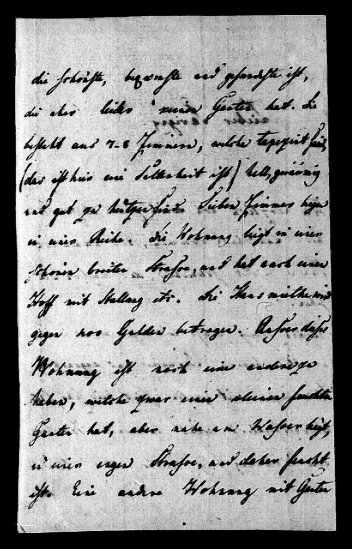 die schönste, bequemste und gesundeste ist,
die aber leider keinen Garten hat. Sie
besteht aus 7-8 Zimmern, welche tapeziert sind,
(das ist hier eine Seltenheit ist) hell, geräumig
und gut zu heitzen sind. Sieben Zimmer liegen
in einer Reihe. Die Wohnung liegt in einer
schönen breiten Strasse, und hat auch einen
Hoff mit Stallung etc. Die Hausmiethe wird
gegen 700 Gulden betragen. Ausser dieser
Wohnung ist noch eine andere zu
haben, welche zwar einen kleinen feuchten
Garten hat, aber nahe am Wasser liegt,
in einer engen Strasse, und daher feucht
ist. Eine andere Wohnung mit Garten